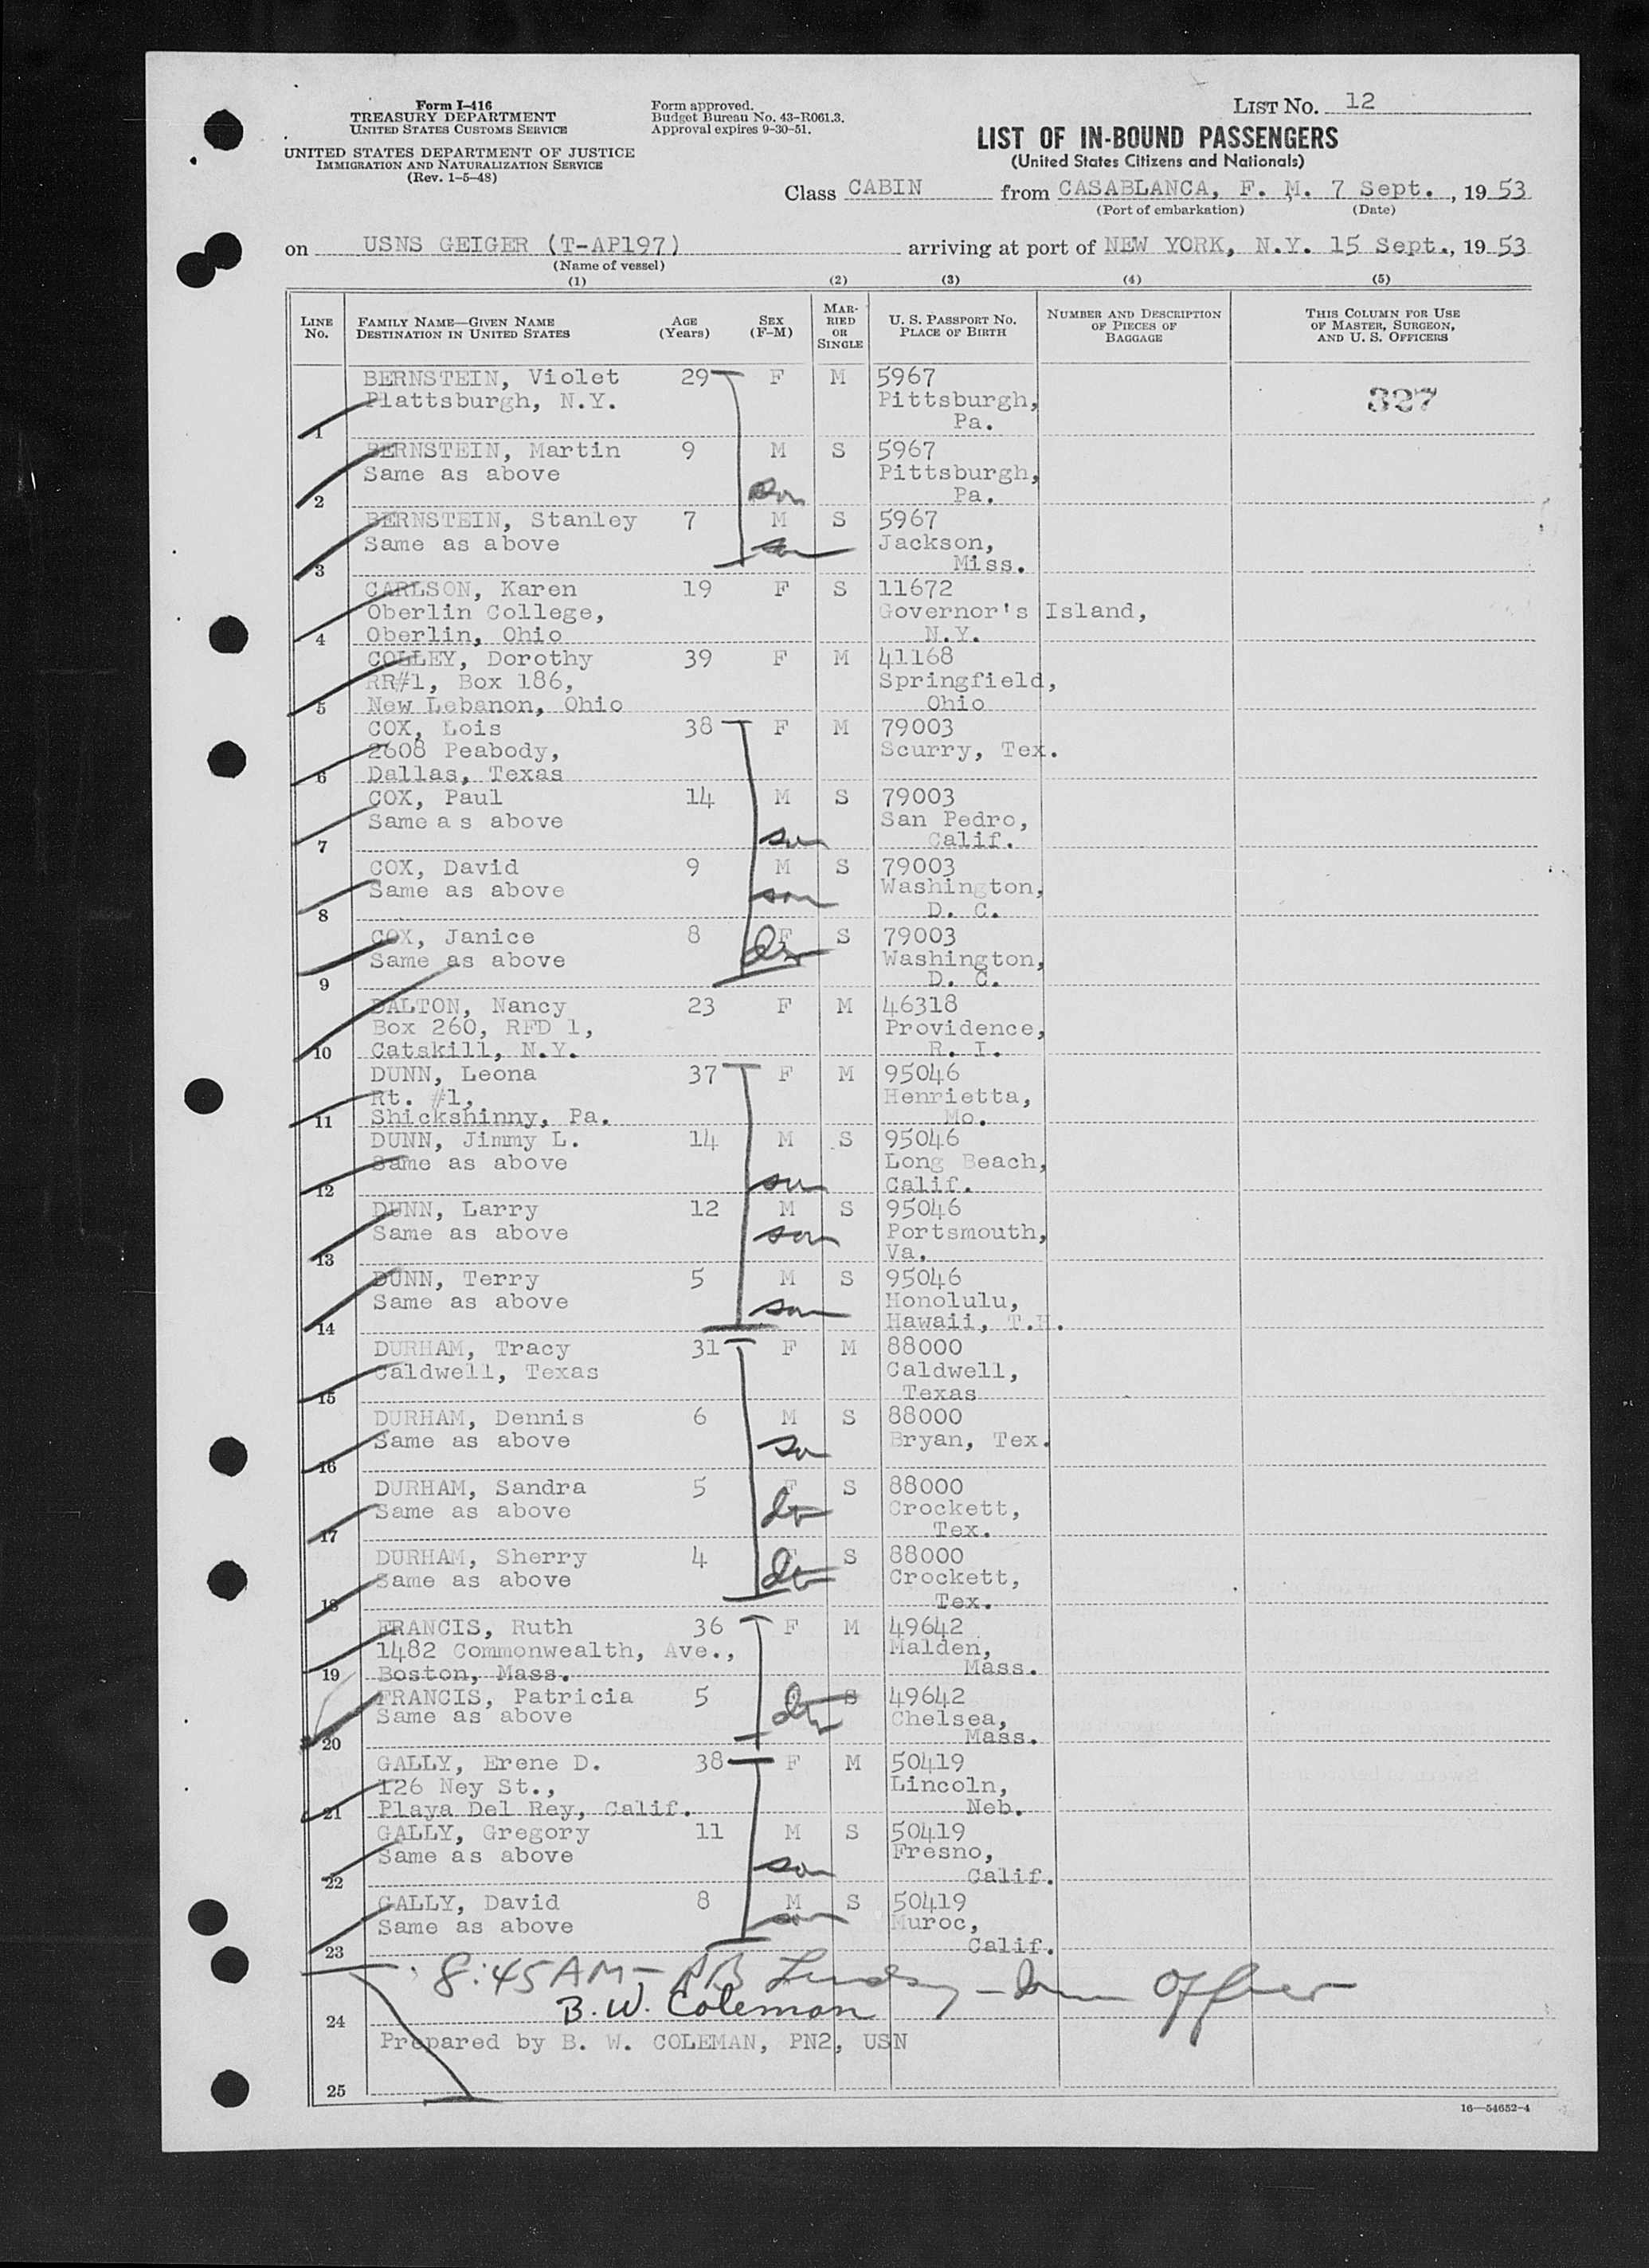 Form I-416
TREASURY DEPARTMENT
UNITED STATES CUSTOMS SERVICE
UNITED STATES DEPARTMENT OF JUSTICE
IMMIGRATION AND NATURALIZATION SERVICE
(Rev. 1-5-48)
Form approved.
Budget Bureau No. 43-R061.3.
Approval expires 9-30-51.
LIST No. 12
LIST OF IN-BOUND PASSENGERS
(United States Citizens and Nationals)
Class CABIN from CASABLANCA, F. M. 7 Sept., 19 53
(Port of embarkation) (Date)
on USNS GEIGER (T-AP197) arriving at port of NEW YORK, N.Y. 15 Sept., 19 53
(Name of vessel)
(1) (2) (3) (4) (5)
LINE No. FAMILY NAME—GIVEN NAME DESTINATION IN UNITED STATES AGE (Years) SEX (F-M) MARRIED OR SINGLE U. S. PASSPORT NO. PLACE OF BIRTH NUMBER AND DESCRIPTION OF PIECES OF BAGGAGE THIS COLUMN FOR USE OF MASTER, SURGEON, AND U. S. OFFICERS
BERNSTEIN, Violet 29 F M 5967
Plattsburgh, N.Y. Pittsburgh, 327
1 Pa.
BERNSTEIN, Martin 9 M S 5967
Same as above Pittsburgh,
2 son Pa.
BERNSTEIN, Stanley 7 M S 5967
Same as above son Jackson,
3 Miss.
CARLSON, Karen 19 F S 11672
Oberlin College, Governor's Island,
4 Oberlin, Ohio N.Y.
COLLEY, Dorothy 39 F M 41168
RR#1, Box 186, Springfield,
5 New Lebanon, Ohio Ohio
COX, Lois 38 F M 79003
2608 Peabody, Scurry, Tex.
6 Dallas, Texas
COX, Paul 14 M S 79003
Same a s above San Pedro,
7 son Calif.
COX, David 9 M S 79003
Same as above son Washington,
8 D. C.
COX, Janice 8 F S 79003
Same as above Washington,
9 D. C.
DALTON, Nancy 23 F M 46318
Box 260, RFD 1, Providence,
10 Catskill, N.Y. R. I.
DUNN, Leona 37 F M 95046
Rt. #1, Henrietta,
11 Shickshinny, Pa. Mo.
DUNN, Jimmy L. 14 M S 95046
Same as above Long Beach,
12 son Calif.
DUNN, Larry 12 M S 95046
Same as above son Portsmouth,
13 Va.
DUNN, Terry 5 M S 95046
Same as above son Honolulu,
14 Hawaii, T.H.
DURHAM, Tracy 31 F M 88000
Caldwell, Texas Caldwell,
15 Texas
DURHAM, Dennis 6 M S 88000
Same as above son Bryan, Tex.
16
DURHAM, Sandra 5 F S 88000
Same as above Crockett,
17 Tex.
DURHAM, Sherry 4 F S 88000
Same as above Crockett,
18 Tex.
FRANCIS, Ruth 36 F M 49642
1482 Commonwealth, Ave., Malden,
19 Boston, Mass. Mass.
FRANCIS, Patricia 5 S 49642
Same as above Chelsea,
20 Mass.
GALLY, Erene D. 38 F M 50419
126 Ney St., Lincoln,
21 Playa Del Rey, Calif. Neb.
GALLY, Gregory 11 M S 50419
Same as above son Fresno,
22 Calif.
GALLY, David 8 M S 50419
Same as above son Muroc,
23 Calif.
8:45 AM - Officer
B. W. Coleman
24
Prepared by B. W. COLEMAN, PN2, USN
25
16—54652-4